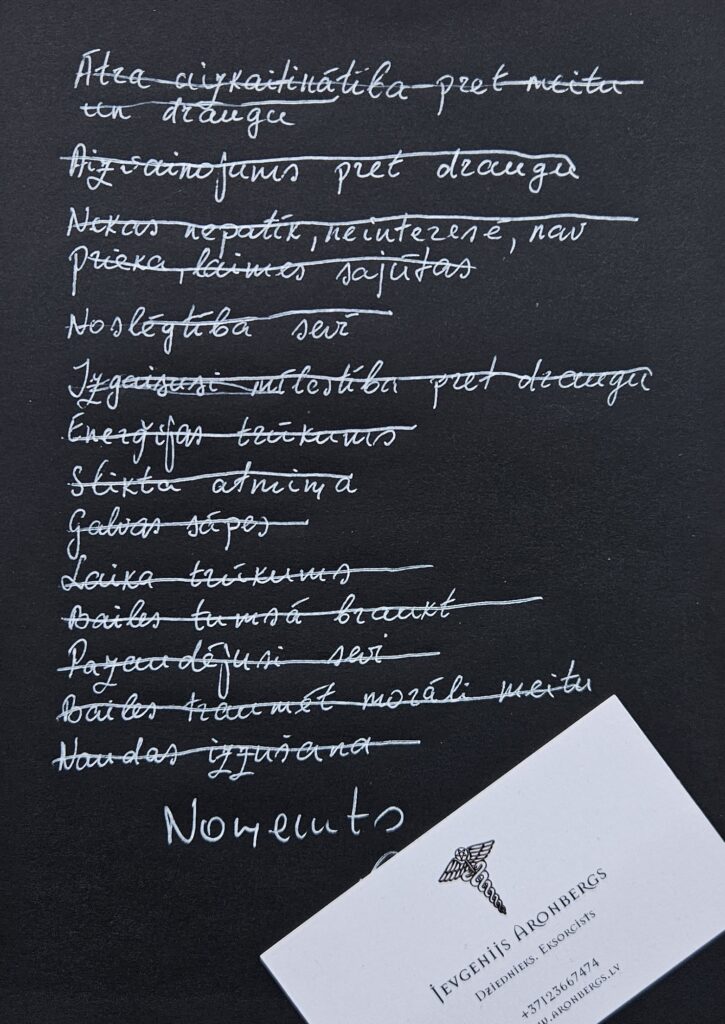 Ātra aizkaitinātība pret meitu
un draugu
Aizvainojums pret draugu
Nekas nepatīk, neinteresē, nav
prieka, laimes sajūtas
Noslēgtība sevī
Izgaisusi mīlestība pret draugu
Enerģijas trūkums
Slikta atmiņa
Galvas sāpes
Laika trūkums
Bailes tumsā braukt
Pazaudējusi sevi
Bailes traumēt morāli meitu
Naudas izzušana
Noņemts
Jevgenijs Aronbergs
Dziednieks. Eksorcists
+37123667474
www.aronbergs.lv